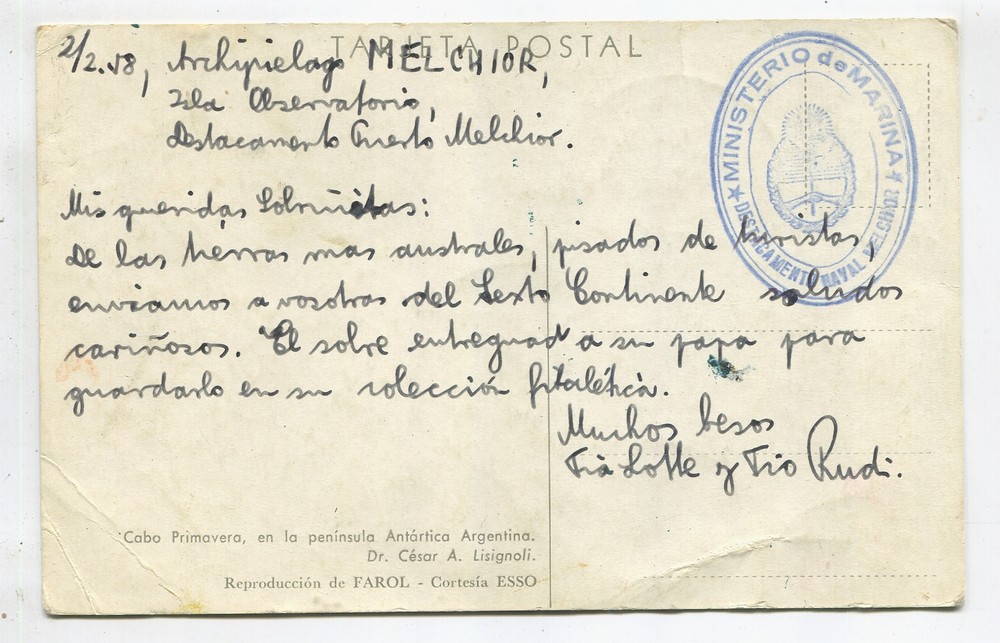 TARJETA POSTAL
2/2.58, Archipielago MELCHIOR,
Isla Observatorio,
Destacamento Puerto Melchior.
★ MINISTERIO de MARINA ★
DESTACAMENTO NAVAL MELCHIOR
Mis queridas Sobrinitas:
De las tierras mas australes, pisados de turistas,
enviamos a vosotras del Sexto Continente saludos
cariñosos. El sobre entreguad a su papa para
guardarlo en su colección fitalética.
Muchos besos
Tia Lotte y Tio Rudi.
Cabo Primavera, en la península Antártica Argentina.
Dr. César A. Lisignoli.
Reproducción de FAROL - Cortesía ESSO